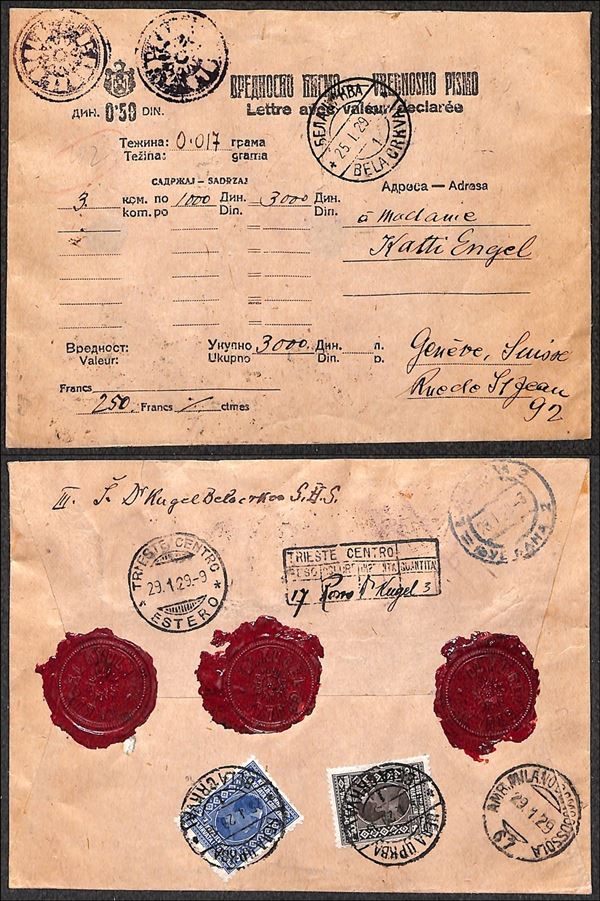 ВРЕДНОСНО ПИСМО — VREDNOSNO PISMO
Lettre avec valeur déclarée
ДИН. 0·50 DIN.
БЕЛА ЦРКВА
25.I.29
1
BELA CRKVA
Тежина: 0.017 грама
Težina: grama
САДРЖАЈ – SADRZAJ
3. ком. по 1000 Дин. 3000 Дин.
kom. po Din. Din.
Адреса — Adresa
à Madame
Katti Engel
Вредност: Укупно 3000. Дин. п.
Valeur: Ukupno Din. p.
Genève, Suisse
Rue de St Jean
92
Francs
250. Francs ctmes
Dr Kugel Bela crkva S.H.S.
TRIESTE CENTRO
29.1.29-9
ESTERO
TRIESTE CENTRO
PESO QUANTITÀ
17 Dr Kugel 3
BELA CRKVA
БЕЛА ЦРКВА
БЕЛА ЦРКВА
AMB. MILANO-DOMODOSSOLA
29.1.29